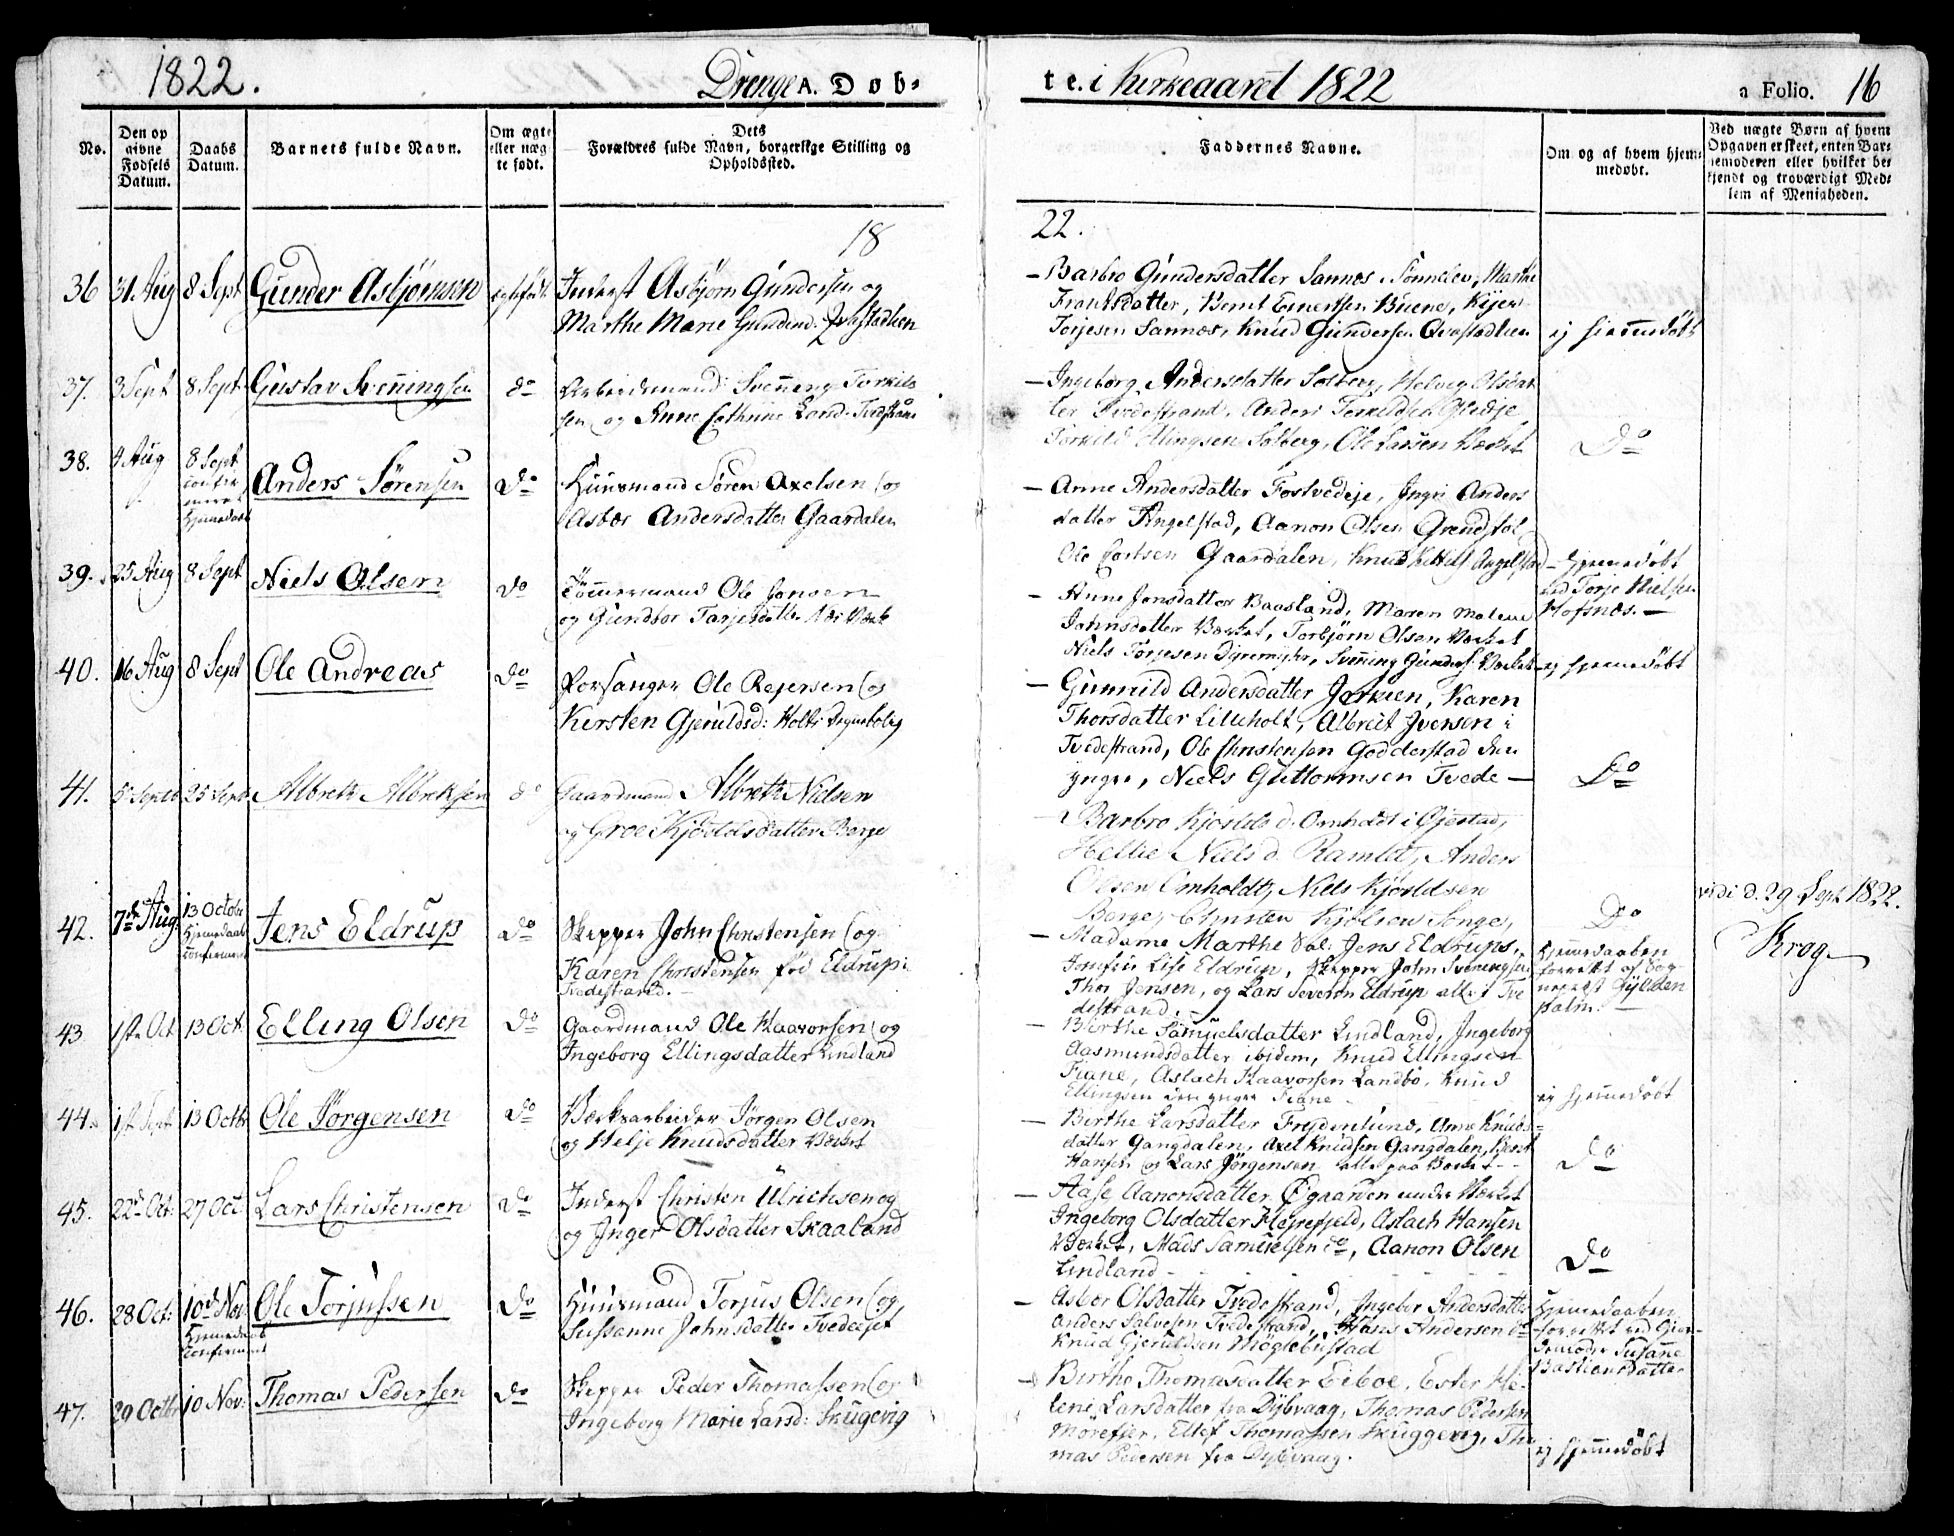 1822.
Drenge A. Døb-
te. i Kirkeaaret 1822
a Folio. 16
No.
Den op
givne
Fødsels
Datum.
Daabs
Datum.
Barnets fulde Navn.
Om ægte
eller næg
te født.
Dets
Forældres fulde Navn, borgerlige Stilling og
Opholdssted.
Faddernes Navne.
Om og af hvem hjem-
medøbt.
Ved uægte Børn af hvem
Opgaven er skeet, enten Bar-
nemoderen eller hvilket be-
kjendt og troværdigt Med-
lem af Menigheden.
18
22.
36 31 Aug 8 Sept Gunder Asbjörnson ægtefødt Inderst Asbjørn Gundersen og
Marthe Marie Gundersd. Qvastadlien
— Barbro Gundersdatter Sannes, Sønneløv, Marthe
Frantsdatter, Bernt Einertsen Buene,
Torjesen Sannæs, Knud Gundersen Qvastadlien
ej hjemmedøbt
37. 3 Sept 8 Sept Gustav Svenningsen do Arbeidsmand Svenning Torkels
sen og Anne Cathrine Land: Tvedestrand
— Ingeborg Andersdatter Solberg, Helvig Olsdat
ter Tvedestrand, Anders Terkeldsen
Torkild Ellingsen Solberg, Ole Larsen Værket
Do
38. 4 Aug 8 Sept
confir
meret
hjemmedøbt
Anders Sørensen Do Huusmand Søren Axelsen og
Asbør Andersdatter Gaardalen
— Anne Andersdatter Fostvedeje, Ingri Anders
datter Angelstad, Aanon Olsen Grendstøl
Ole Gaardalen, Knud Angelstad
— hjemmedøbt
ved Torje Nielsen
Hofsnæs. —
39. 25 Aug 8 Sept Niels Olsen Do Tømmermand Ole Jonsen
og Gundbor Tarjesdatter Næs Værk
— Anne Jonsdatter Baasland, Maren Malene
Johnsdatter Værket, Torbjørn Olsen Værket
Niels Torjesen Svenning Gunders. Værket
— ej hjemmedøbt
40. 16 Aug 8 Sept Ole Andreas Do Forsanger Ole Rejersen og
Kersten Gjeruldsd: Holts Degnebolig
— Gunnild Andersdatter Karen
Thorsdatter Lilleholt, Albret Iversen i
Tvedestrand, Ole Christensen Godderstad den
yngre, Niels Guttormsen Tvede —
Do
41. 5 Septb 25 Sept Albreth Albretsen do Gaardmand Albreth Nielsen
og Groe Kjöstolsdatter Berge
— Barbro Kjöstels d. Omholdt i Gjerstad,
Hellie Niels d. Ramlet, Anders
Olsen Omholdt, Niels Kjöstelsen
Berge, Christen Songe,
Do
vidi d. 29 Sept. 1822.
Krog
42. 7de Aug: 13 Octobr
hjemmedaab
confirmeret
Jens Eldrup Do Skipper John Christensen og
Karen Christensen fød Eldrup
Tvedestrand.
— Madame Marthe Sal: Jens Eldrups,
Jomfru Lise Eldrup, Skipper John Svenningsen
Thor Jensen, og Lars Severin Eldrup alle i Tve
destrand.
hjemmedaaben
forrettet af Sog
nepræst Gylden
palm.
43 1ste Oct 13 Oct Elling Olsen Do Gaardmand Ole Haavorsen og
Ingeborg Ellingsdatter Lindland
— Birthe Samuelsdatter Lindland, Ingeborg
Aasmundsdatter ibidem, Knud Ellingsen
Fiane, Aslach Haavorsen Landbø, Knud
Ellingsen den yngre Fiane
ej hjemmedöbt
44. 1ste Sept 13 Octb Ole Jörgensen Do Værksarbeider Jørgen Olsen
og Helje Knudsdatter Værket
— Birthe Larsdatter Frydenlund, Anne Knuds-
datter Gangdalen, Axel Knudsen Gangdalen, Bernt
Hansen og Lars Jørgensen alle paa Værket
Do
45. 22d Oct: 27 Oct Lars Christensen Do Inderst Christen Ulrichsen og
og Inger Olsdatter Skaaland
— Aase Aanonsdatter Øgaarden under Værket
Ingeborg Olsdatter Hejrefjeld, Aslach Hansen
Værket, Mads Samuelsen do, Aanon Olsen
Lindland
Do
46. 28 Oct: 10d Nov:
hjemmedaab
confirmeret
Ole Torjussen Do Huusmand Torjus Olsen og
Sussanne Johnsdatter Tvedeejet
— Asbor Olsdatter Tvedestrand, Ingebor Andersdatter
Anders Salvesen Tvedestrand, Hans Andersen do
Knud Gjeruldsen Møglebustad
hjemmedaaben
forrettet ved Gior-
demoder Susane
Bastiansdatter
47. 29 Octbr 10 Nov: Thomas Pedersen Do Skipper Peder Thomassen og
Ingeborg Marie Larsd: Skugevig
— Birthe Thomasdatter Eiboe, Ester He-
lene Larsdatter fra Dybvaag, Thomas Pedersen
Morefjer, Ellef Thomassen Skuggevig, Tho
mas Pedersen fra Dybvaag.
ej hjemmedöbt